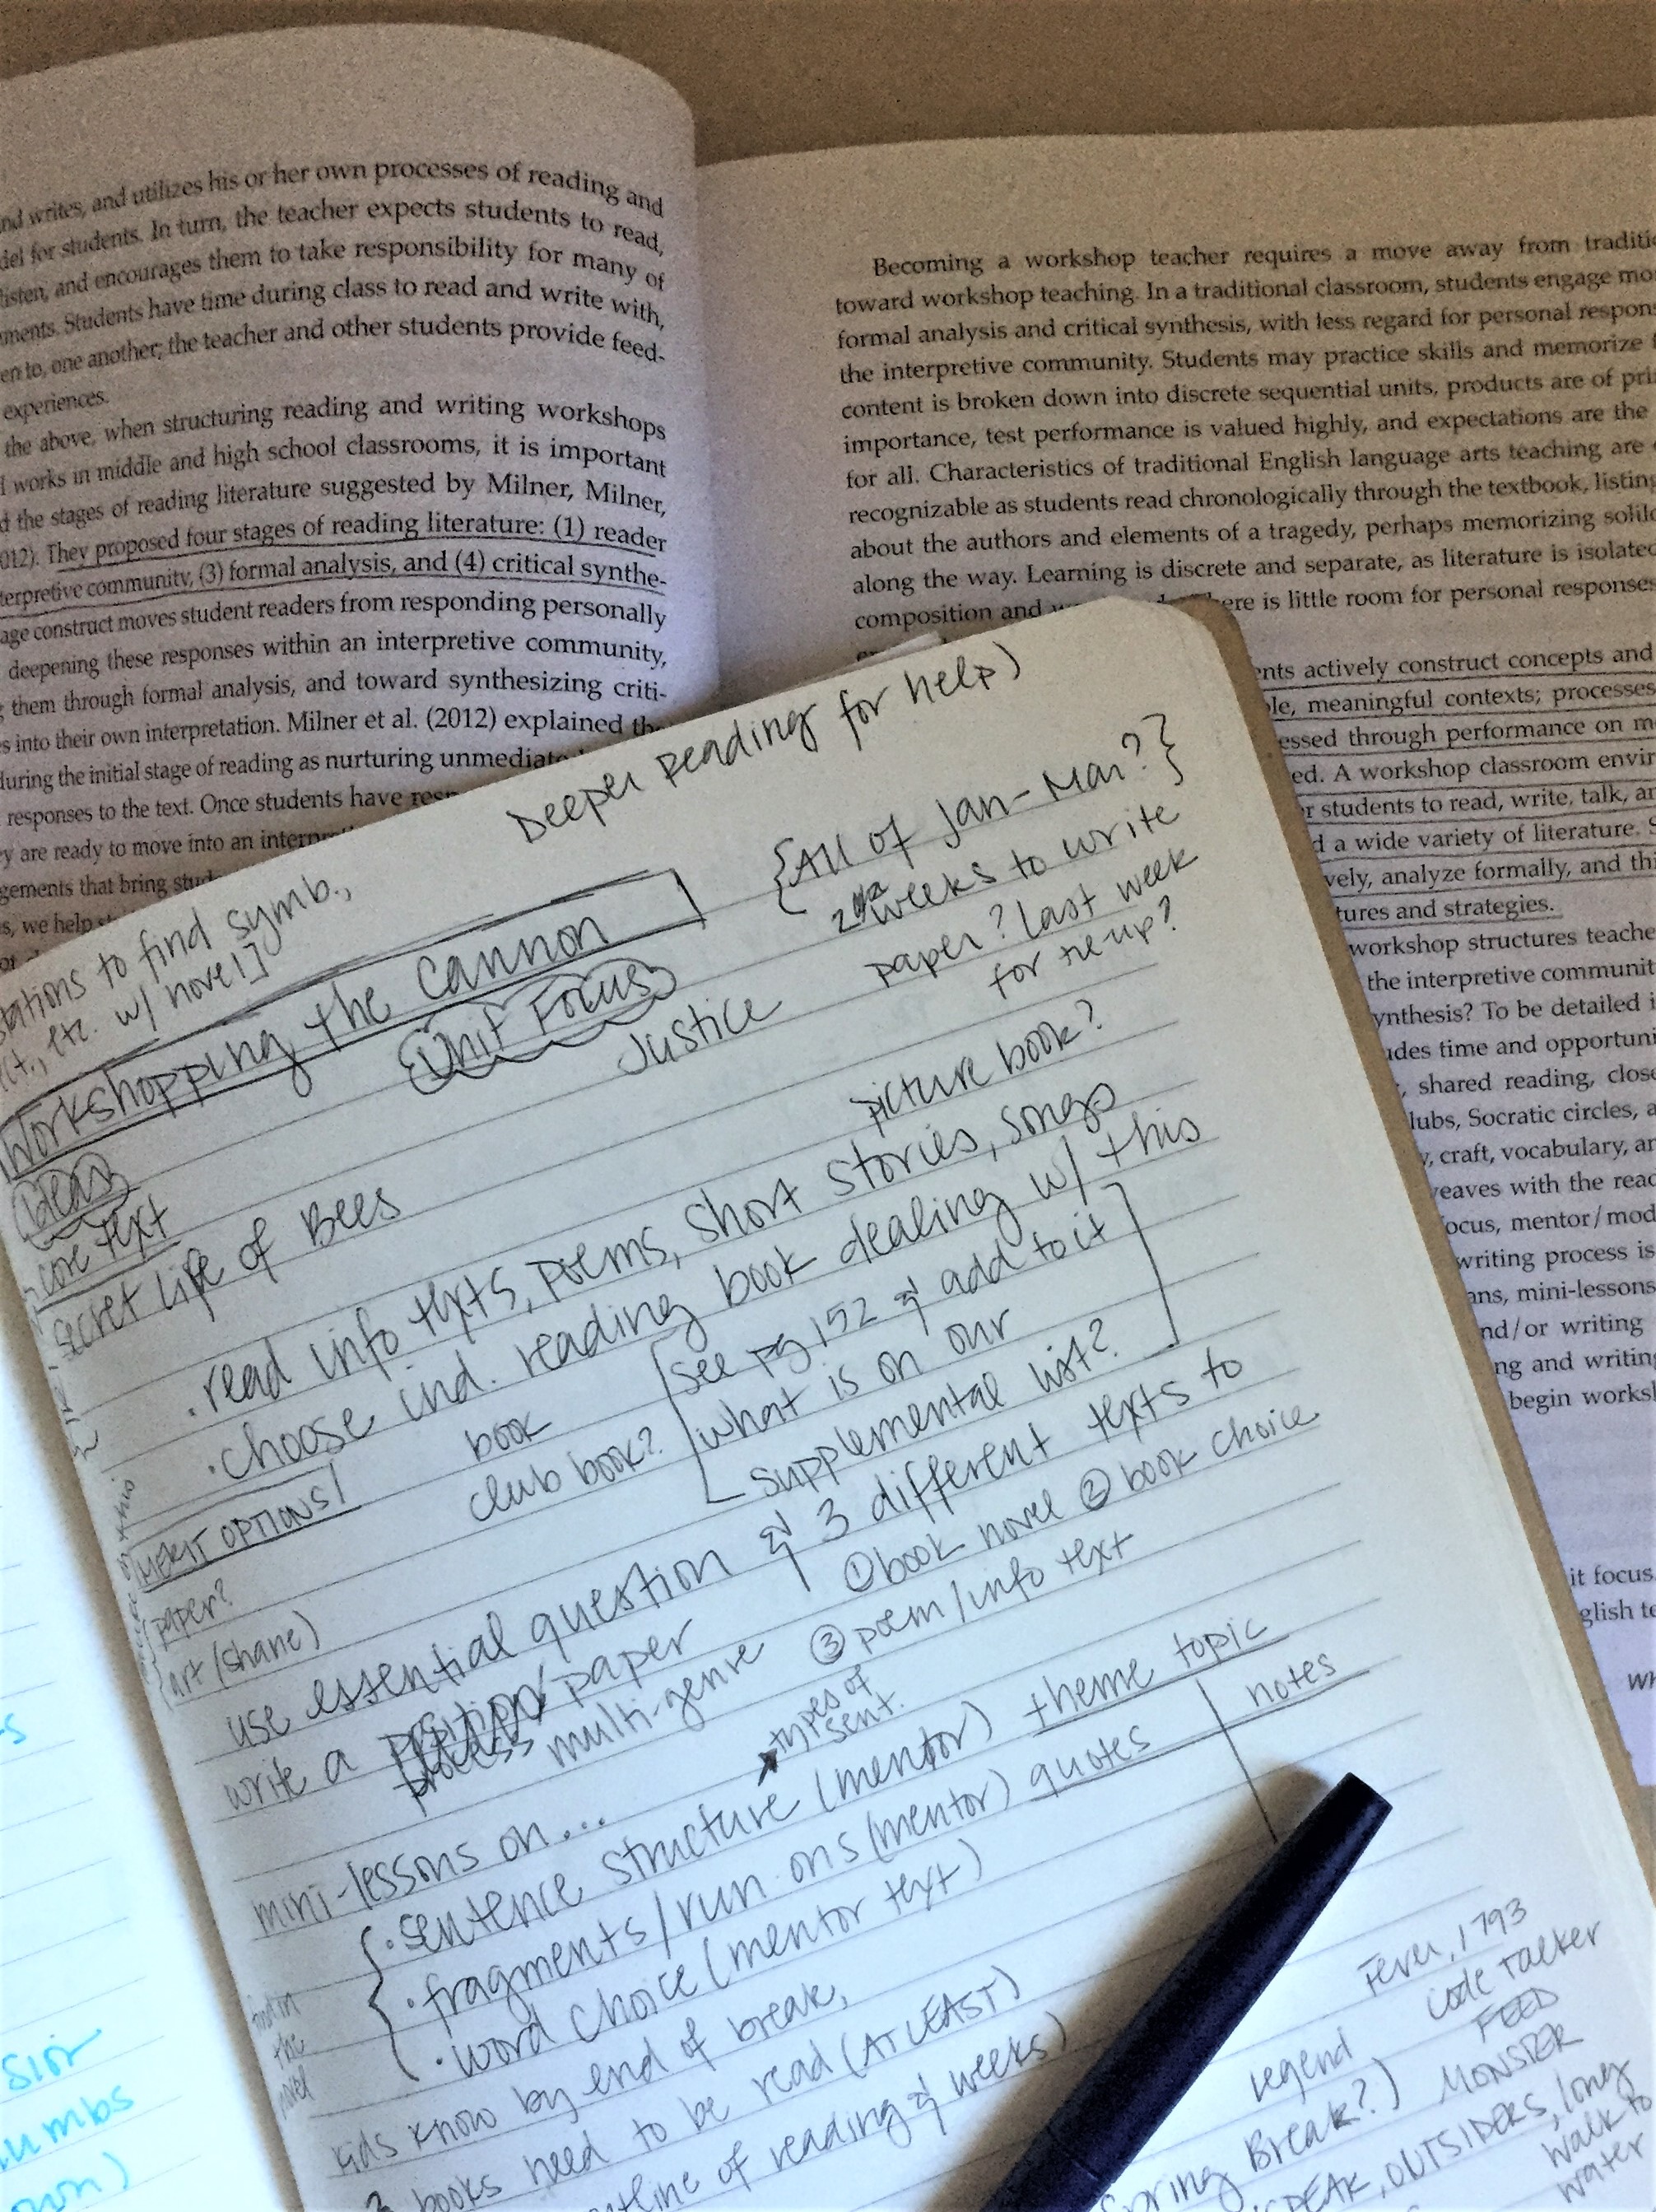 nd writes, and utilizes his or her own processes of reading and
del for students. In turn, the teacher expects students to read,
listen, and encourages them to take responsibility for many of
ments. Students have time during class to read and write with,
en to, one another; the teacher and other students provide feed-
experiences.
the above, when structuring reading and writing workshops
l works in middle and high school classrooms, it is important
d the stages of reading literature suggested by Milner, Milner,
012). They proposed four stages of reading literature: (1) reader
terpretive community, (3) formal analysis, and (4) critical synthe-
age construct moves student readers from responding personally
deepening these responses within an interpretive community,
them through formal analysis, and toward synthesizing criti-
s into their own interpretation. Milner et al. (2012) explained the
during the initial stage of reading as nurturing unmediate
responses to the text. Once students have res
y are ready to move into an interp
gements that bring stud
s, we help
Becoming a workshop teacher requires a move away from traditi
toward workshop teaching. In a traditional classroom, students engage mo
formal analysis and critical synthesis, with less regard for personal respons
the interpretive community. Students may practice skills and memorize f
content is broken down into discrete sequential units, products are of pri
importance, test performance is valued highly, and expectations are the
for all. Characteristics of traditional English language arts teaching are
recognizable as students read chronologically through the textbook, listing
about the authors and elements of a tragedy, perhaps memorizing solilo
along the way. Learning is discrete and separate, as literature is isolated
composition and here is little room for personal responses
ents actively construct concepts and
ble, meaningful contexts; processes
essed through performance on m
ed. A workshop classroom envir
or students to read, write, talk, an
d a wide variety of literature. S
vely, analyze formally, and thi
tures and strategies.
workshop structures teache
the interpretive communit
ynthesis? To be detailed i
udes time and opportuni
, shared reading, close
lubs, Socratic circles, a
y, craft, vocabulary, an
weaves with the read
ocus, mentor/mod
writing process is
ans, mini-lessons
nd/or writing
ng and writing
begin worksh
it focus.
glish te
Wh
Deeper Reading for help)
{All of Jan-Mar?}
2 weeks to write
paper? last week
for tie-up?
stations to find symb.,
etc. w/ novel]
Workshopping the Cannon
Unit Focus
Justice
Ideas
core text
Secret Life of Bees
picture book?
· read info texts, poems, short stories, songs
· choose ind. reading book dealing w/ this
book
club book?
[see pg 152 & add to it
what is on our
supplemental list?]
MERIT OPTIONS!
paper?
art (share)
use essential question & 3 different texts to
write a process paper
① book novel ② book choice
multi-genre ③ poem/info text
mini-lessons on...
types of
sent.
· sentence structure (mentor)
· fragments/run ons (mentor)
· word choice (mentor text)
theme topic
quotes | notes
find in
the
novel
kids know by end of break,
books need to be read (AT LEAST)
outline of reading & weeks)
Spring Break?)
Fever, 1793
Code Talker
Legend FEED
MONSTER
SPEAK, OUTSIDERS, long
walk to
water
sion
umbs
own)